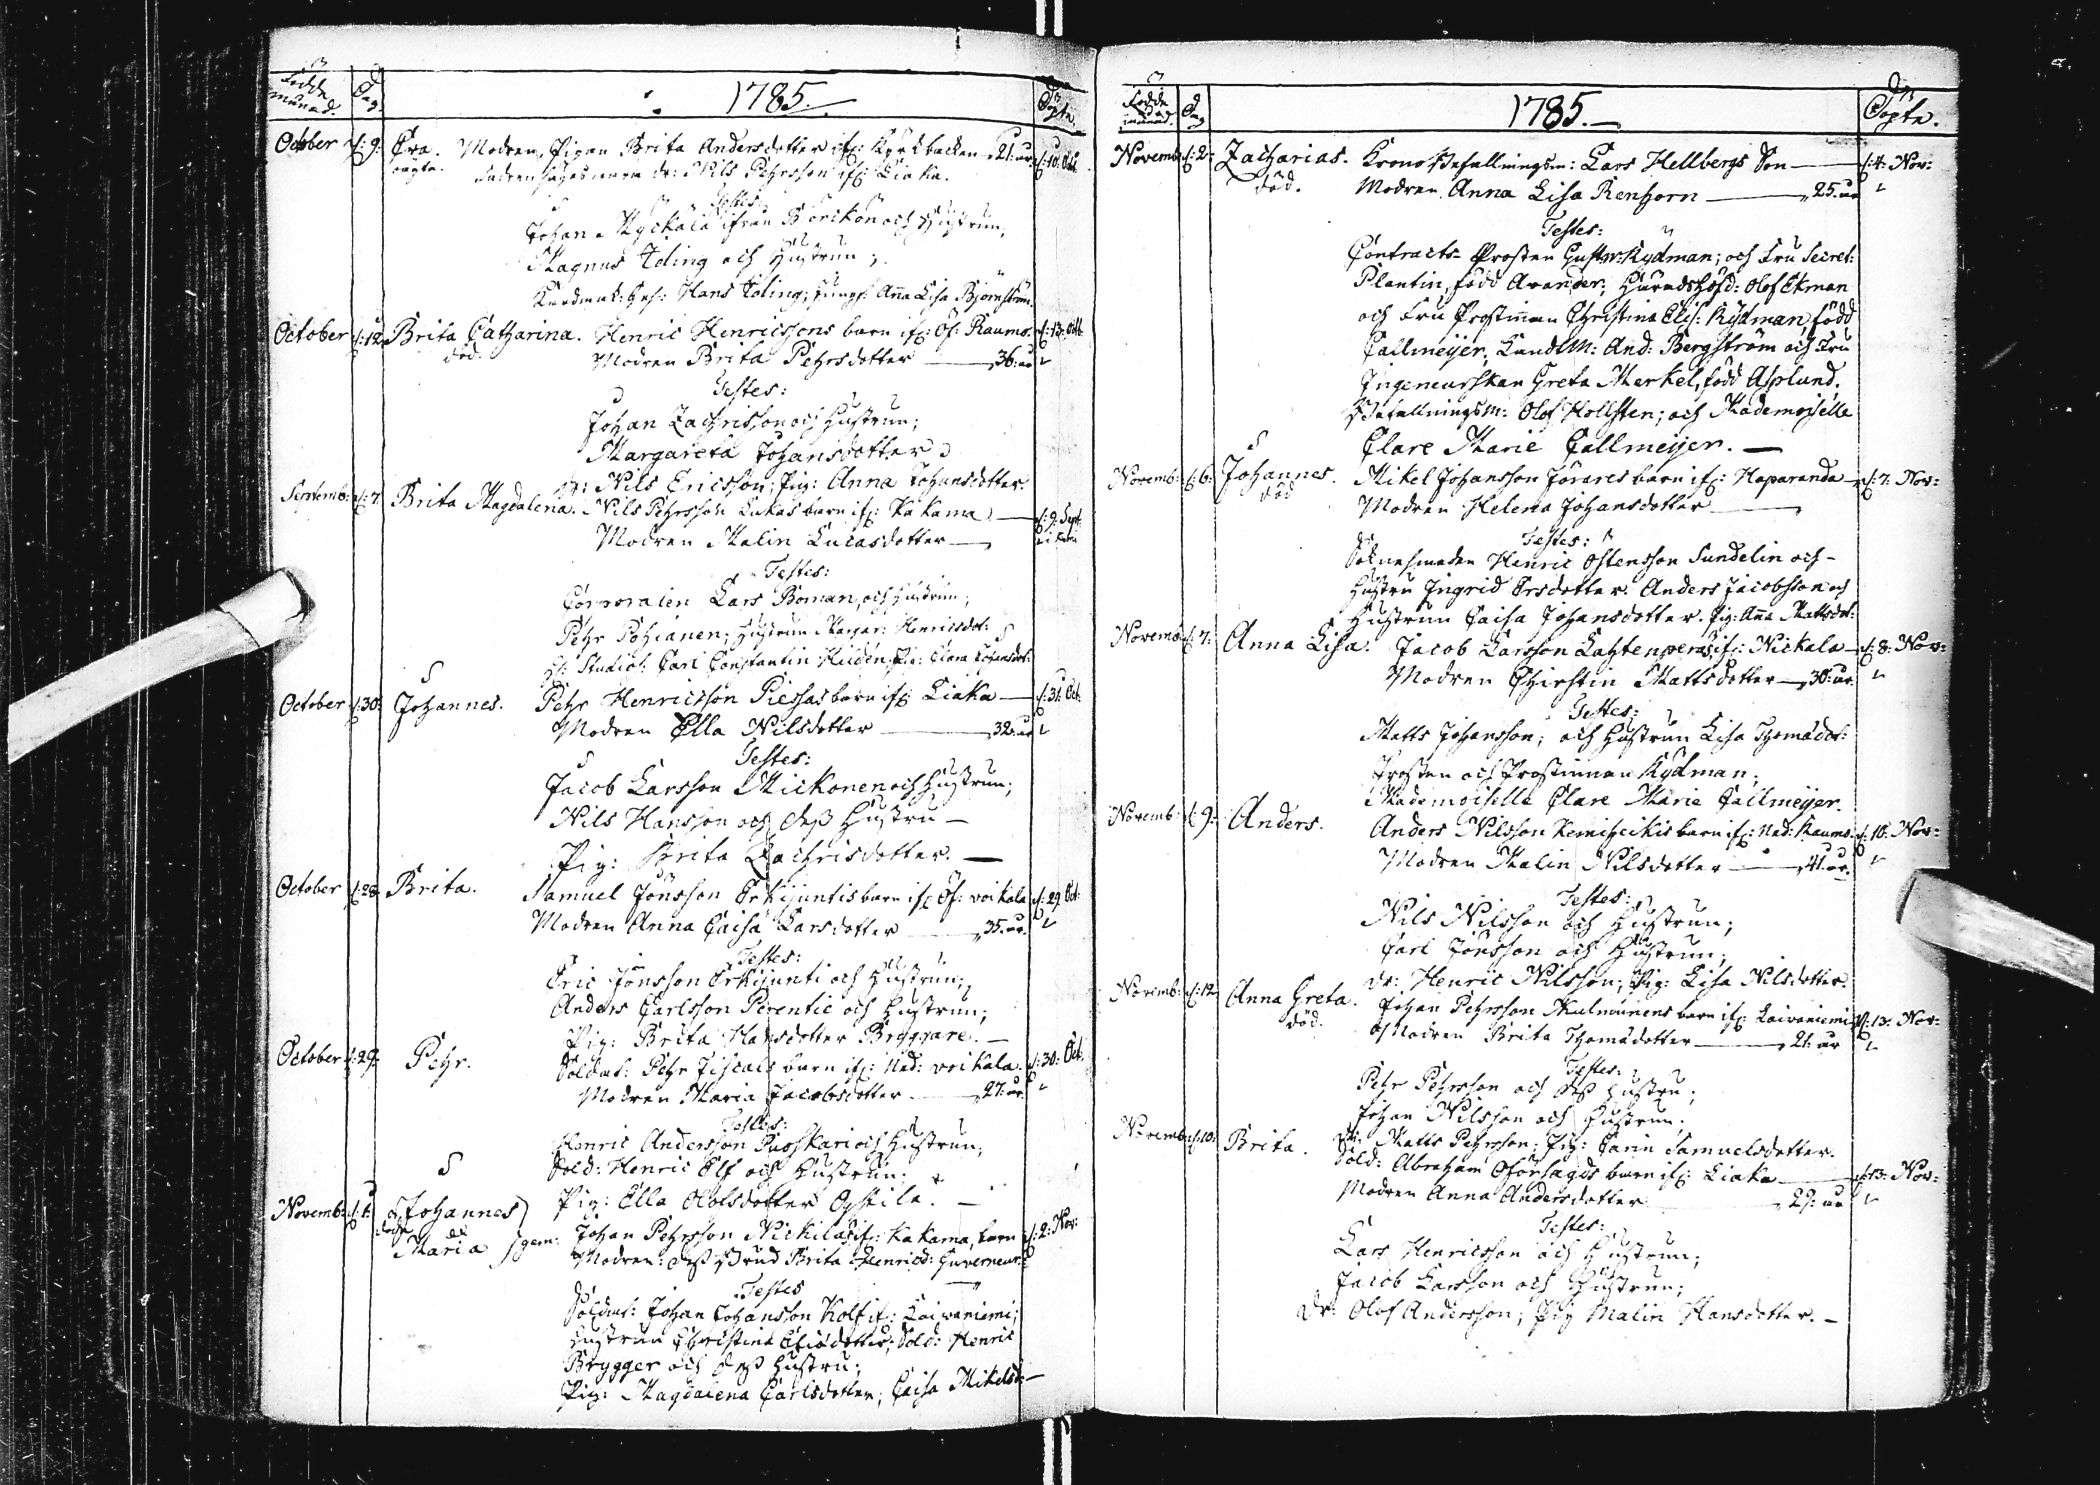 Födde månad. Dag. 1785. Döpte.
October d: 9. Eva. Modren, Pigan Brita Andersdotter if: Kyrkbacken 21. år. d: 10. Oct.
oägta. Fadren säges vara dr: Nils Pehrsson if: Liaka.
Testes:
Johan Kyckälä ifrån Björkön och Hustrun;
Magnus Toling och Hustrun;
Hans Toling; Jungf: Aña Lisa Björnström.
October d: 12. Brita Catharina. Henric Henricssons barn if: Öf: Raumo. d: 13. Oct.
död. Modren Brita Pehrsdotter 36. år
Testes:
Johan Zachrisson och Hustrun;
Margareta Johansdotter
dr: Nils Ericsson; Pig: Anna Johansdotter.
Septemb: d: 7. Brita Magdalena. Nils Pehrsson Lukas barn if: Kakama d: 9. Sept.
Modren Malin Lucasdotter
Testes:
Corporalen Lars Boman, och Hustrun;
Pehr Pohianen; Hustrun Margar: Henricsdot:
H: Studios: Carl Constantin Hildén, Pig: Clara Johansdot:
October d: 30. Johannes. Pehr Henricsson Piessas barn if: Liaka d: 31. Oct.
Modren Ella Nilsdotter 32. år
Testes:
Jacob Larsson Mickonen och Hustrun;
Nils Hansson och dess Hustru
Pig: Brita Zachrisdotter.
October d: 28. Brita. Samuel Jönsson Erkijuntis barn if: Öf: Voikala d: 29. Oct:
Modren Anna Caisa Larsdotter 35. år.
Testes:
Eric Jönsson Erkijunti och Hustrun;
Anders Carlsson Perentie och Hustrun;
Pig: Brita Hansdotter Bryggare.
October d: 29. Pehr. Soldat: Pehr Fiscals barn if: Ned: Voikala. d: 30: Oct.
Modren Maria Jacobsdotter 27. år.
Testes:
Henric Andersson Puoskari och Hustrun;
Sold: Henric Elf och Hustrun;
Pig: Ella Olofsdotter Ogfila.
Novemb: d: 1. Johannes
Maria gem: Johan Pehrsson Nickilas if: Kakama, barn d: 2: Nov:
Modren: dess Brud Brita Henricd: Guverneur.
Testes
Soldat: Johan Johansson Kolf if: Laiwaniemi;
Hustrun Christina Ersdotter; Sold: Henric
Brygger och dess Hustru;
Pig: Magdalena Carlsdotter; Caisa Mikelsd:
Födde månad. Dag 1785. Döpte.
Novemb: d: 2. Zacharias. Krono Befallningsm: Lars Hellbergs Son d: 4. Nov:
död. Modren Anna Lisa Renhorn 25. år
Testes:
Contracts-Prosten Gustav: Rydman; och Fru Secret:
Plantin, född Avander; Häradshöfd: Olof Ekman
och Fru Prostinnan Christina Elis: Rydman, född
Callmeijer, LandtM: And: Bergström och Fru
Ingenieurskan Greta Merkel, född Asplund.
Befallningsm: Olof Hollsten; och Mademoiselle
Clare Marie Callmeijer.
Novemb: d: 6. Johannes. Mikel Johansson Jörares barn if: Haparanda d: 7. Nov:
död Modren Helena Johansdotter
Testes:
Sökneskmeden Henric Ostensson Sundelin och
Hustru Ingrid Ersdotter. Anders Jacobsson och
Hustrun Caisa Johansdotter. Pig: Aña Mattsdot:
Novemb: d: 7: Anna Lisa. Jacob Larsson Lahtenperäs if: Nickala d: 8: Nov:
Modren Chirstin Mattsdotter 30. år.
Testes:
Matts Johansson; och Hustrun Lisa Thomædot:
Prosten och Prostinnan Rydman;
Mademoiselle Clare Marie Callmeijer.
Novemb: d: 9: Anders. Anders Nilsson Kemiheikis barn if: Ned: Raumo. d: 10: Nov:
Modren Malin Nilsdotter 41. år.
Testes:
Nils Nilsson och Hustrun;
Carl Jönsson och Hustrun;
dr: Henric Nilsson; Pig: Lisa Nilsdotter.
Novemb: d: 12. Anna Greta. Johan Pehrsson Kulmunens barn if: Laiwaniemi d: 13. Nov:
död. Modren Brita Thomædotter 21: år
Testes:
Pehr Pehrsson och dess Hustru;
Johan Nilsson och Hustrun;
dr: Matts Pehrsson; Pig: Carin Samuelsdotter.
Novemb: d: 10: Brita. Sold: Abraham Oförsagds barn if: Liaka d: 13. Nov:
Modren Anna Andersdotter 29: år
Testes:
Lars Henricsson och Hustrun;
Jacob Larsson och Hustrun;
Dr: Olof Andersson; Pig Malin Hansdotter.